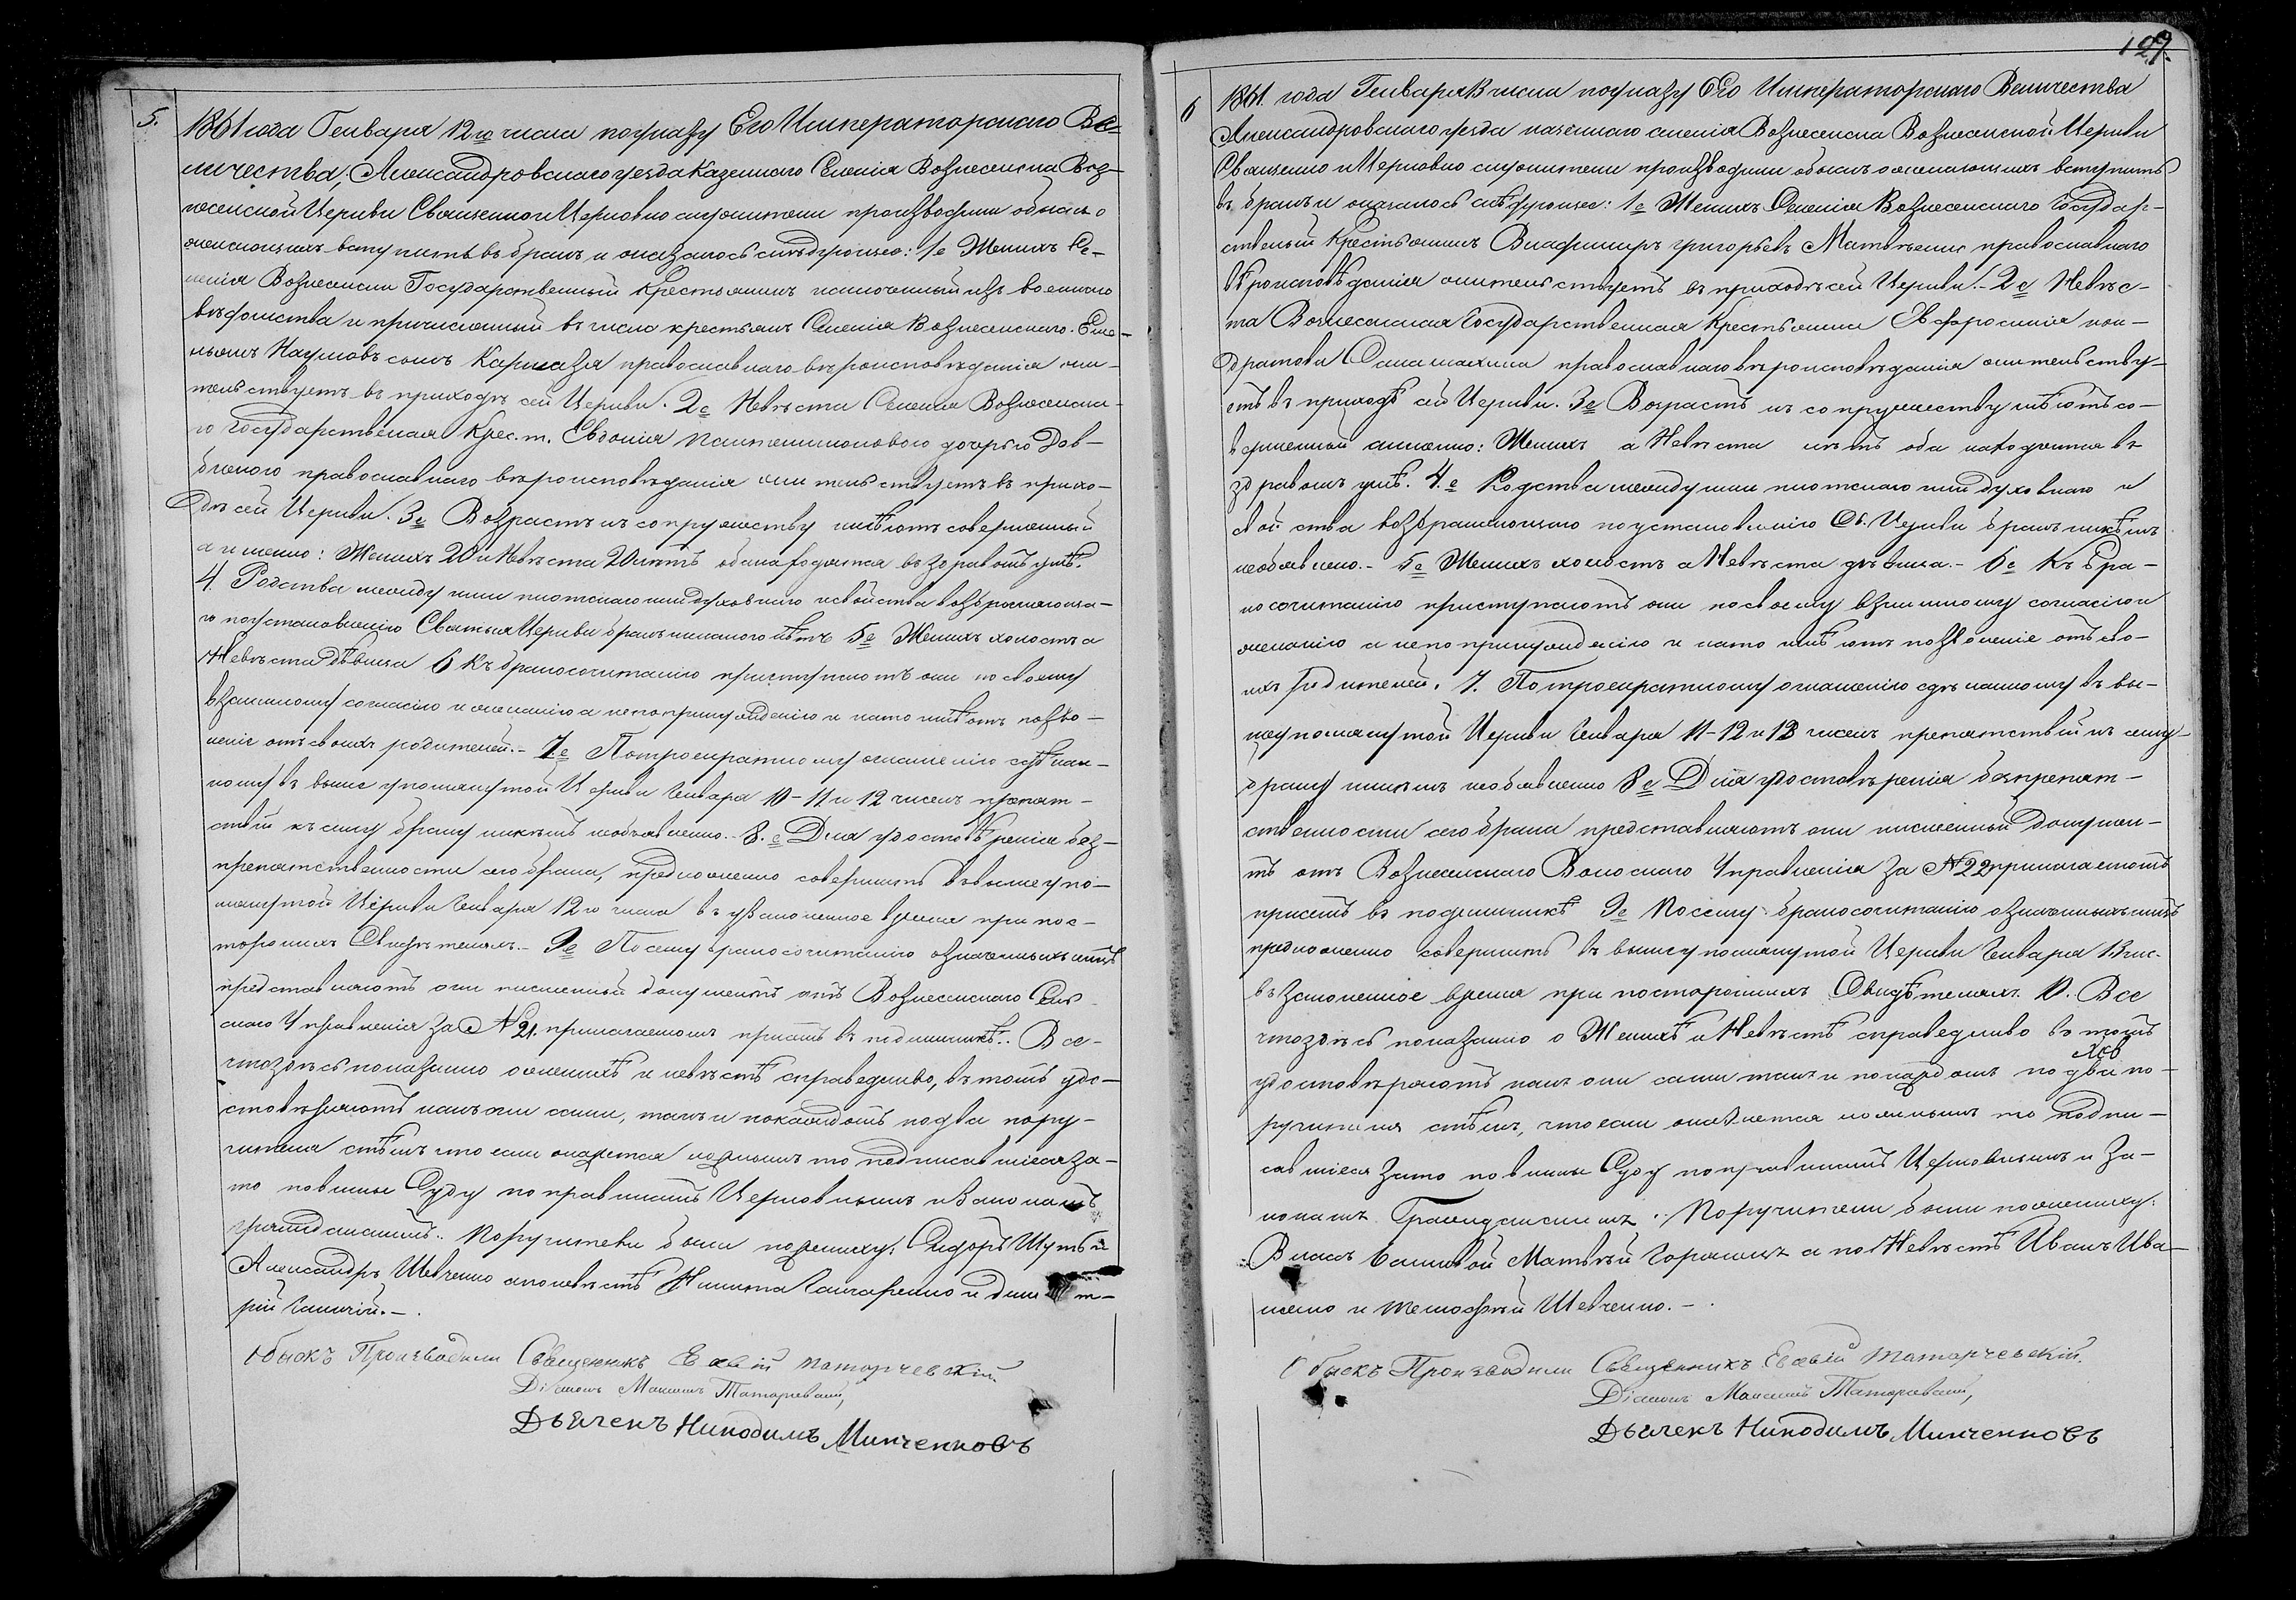 5.
1861 года Генваря 12го числа по указу Его Императорскаго Ве-
личества, Александровскаго уезда Казеннаго Селенія Вознесенска Воз-
несенской Церкви Священно и Церковно служители производили обыскъ о
желающихъ вступить въ бракъ и оказалось слѣдующее: 1е Женихъ Се-
ленія Вознесенки Государственный Крестьянинъ изъ военнаго
вѣдомства и причисленный въ число крестьянъ Селенія Вознесенскаго Еме-
льянъ Наумовъ сынъ православнаго вѣроисповѣданія жи-
тельствуетъ въ приходѣ сей Церкви. 2е Невѣста Селенія Вознесенска-
го Государственная Крес.т. Евдокія Пантелимонова дочерью Дов-
православнаго вѣроисповѣданія жительствуетъ въ прихо-
дѣ сей Церкви. 3е Возрастъ къ супружеству имѣютъ совершенный
а именно: Женихъ 20 и Невѣста 20 лѣтъ оба находятся въ здравомъ умѣ.
4. Родства между ими плотскаго или духовнаго и свойства возбраняюща-
го по установленію Святыя Церкви бракъ никакого нѣтъ 5е Женихъ холостъ а
Невѣста дѣвица 6 Къ бракосочитанію приступаютъ они по своему
взаимному согласію и желанію а непопринужденію и на то имѣютъ позво-
леніе отъ своихъ родителей.- 7.е Потроекратному оглашенію сдѣлан-
ному въ выше упомянутой Церкви Генваря 10-11 и 12 числъ препят-
ствій къ сему браку никѣмъ необъявлено.- 8.е Для удостовѣренія без-
препятственности сего брака, предположено совершить въ вышеупо-
мянутой Церкви Генваря 12го числа въ узаконенное время при пос-
тороннихъ Свидѣтеляхъ.- 9е По сему бракосочитанію означенныхъ лицъ
представляютъ они письменный документъ отъ Вознесенскаго Сель-
скаго Управленія за № 21. прилагаемомъ присемъ въ подлинникѣ.. Все-
что здѣсь показанно о женихѣ и невѣстѣ справедливо, въ томъ удо-
стовѣряютъ какъ они сами, такъ и по каждомъ по два пору-
чителя стѣмъ что если окажется ложнымъ то подписавшіеся за-
то повинны Суду по правиламъ Церковнымъ и Законамъ
гражданскимъ.. Поручители были по жениху: Сидоръ Шуть и
Александръ Шевченко а по невѣстѣ Никита Гончаренко и Дми т-
рій
Обыскъ Производили Священникъ Евѳій Татарчевскій
Діаконъ Максимъ Татарчевскій,
Дьячекъ Никодимъ Минченковъ
127.
6
1861. года Генваря 13 числа по указу Его Императорскаго Величества
Александровскаго уезда казеннаго селенія Вознесенска Вознесенской Церкви
Священно и Церковно служители производили обыскъ о желающихъ вступить
въ бракъ и оказалось слѣдующее: 1е Женихъ Селенія Вознесенскаго Государ-
ственый Крестьянинъ Владимиръ Григорьевъ православнаго
вѣроисповѣданія жительствуетъ въ приходѣ сей Церкви.- 2е Невѣс-
та Вознесенская Государственная Крестьянка Евфросинія Кон-
дратова православнаго вѣроисповѣданія жительству-
етъ въ приходѣ сей Церкви. 3е Возрастъ къ супружеству имѣютъ со-
вершенный а именно: Женихъ а Невѣста лѣтъ оба находятся въ
здравомъ умѣ. 4.е Родства между ими плотскаго или духовнаго и
свойства возбраняющаго по установленію Св. Церкви бракъ никѣмъ
необявлено.- 5е Женихъ холостъ а Невѣста дѣвица.- 6е Къ бра-
косочитанію приступаютъ они по своему взаимному согласію и
желанію а непопринужденію и на то имѣютъ позволеніе отъ сво-
ихъ родителей. 7. Потроекратному оглашенію сдѣланному въ вы-
шеупомянутой Церкви Генваря 11-12 и 13 числъ препятствій къ сему
браку никѣмъ необявлено 8е Для удостовѣренія безпрепят-
ственности сего брака представляютъ они письменный докумен-
тъ отъ Вознесенскаго Волоснаго Управленія за № 22 прилагаемомъ
присемъ въ подлинникѣ 9е По сему бракосочитанію означенныхъ лицъ
предположено совершить въ вышеупомянутой Церкви Генваря 13 чис.
въ законенное время при постороннихъ Свидѣтеляхъ. 10. Все
что здѣсь показанно о Женихѣ и Невѣстѣ справедливо въ томъ
удостовѣряютъ какъ они сами такъ и по каждомъ по два по-
ручителя стѣмъ, что если окажется ложнымъ то подпи-
савшіеся за то повинны Суду по правиламъ Церковнымъ и За-
конамъ Гражданскимъ.. Поручители были по жениху:
Власъ Матвѣй а по Невѣстѣ Иванъ Ива-
щенко и Тимофѣй Шевченко.-
Обыскъ Производили Священникъ Евѳій Татарчевскій.
Діаконъ Максимъ Татарчевскій,
Дьячекъ Никодимъ Минченковъ